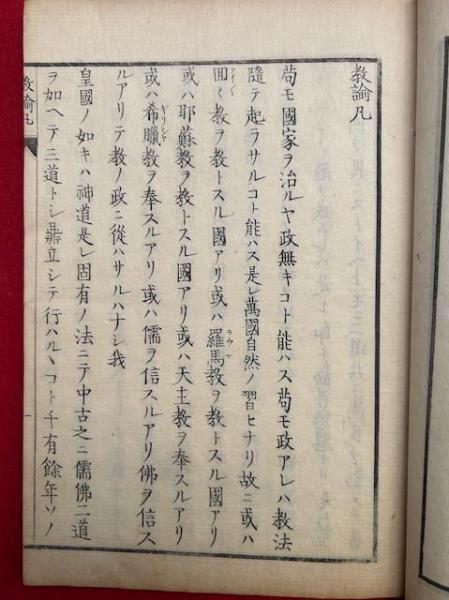 教論凡
苟モ國家ヲ治ルヤ政無キコト能ハス苟モ政アレハ教法
隨テ起ラサルコト能ハス是レ萬國自然ノ習ヒナリ故ニ或ハ
回々教ヲ教トスル國アリ或ハ羅馬教ヲ教トスル國アリ
或ハ耶蘇教ヲ教トスル國アリ或ハ天主教ヲ奉スルアリ
或ハ希臘教ヲ奉スルアリ或ハ儒ヲ信スルアリ佛ヲ信ス
ルアリテ教ノ政ニ從ハサルハナシ我
皇國ノ如キハ神道是レ固有ノ法ニテ中古之ニ儒佛二道
ヲ加ヘテ三道トシ鼎立シテ行ハルヽコト千有餘年ソノ
教論凡
一